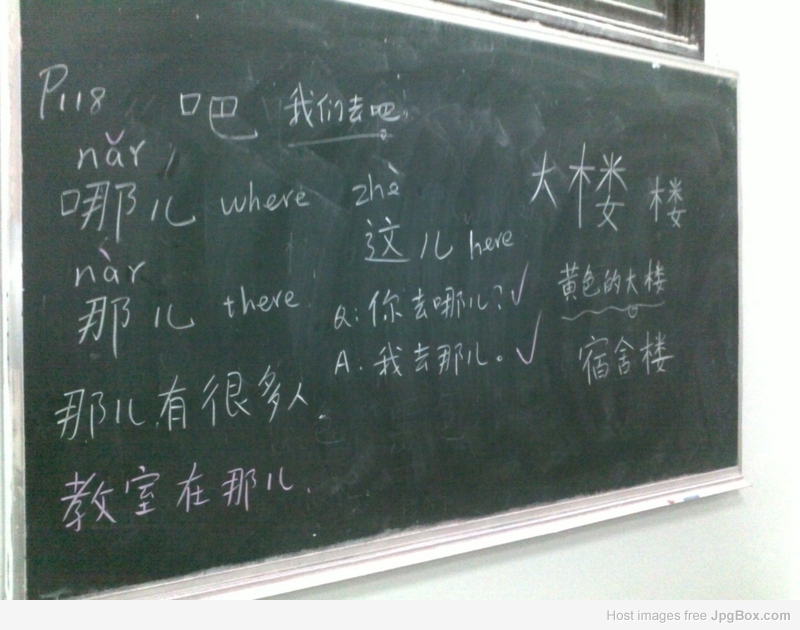 P118 吧 我们去吧。
nǎr
哪儿 where
nàr
那儿 there
那儿有很多人.
教室在那儿.
zhè
这儿 here
Q: 你去哪儿? ✓
A. 我去那儿。 ✓
大楼 楼
黄色的大楼
宿舍楼
Host images free JpgBox.com